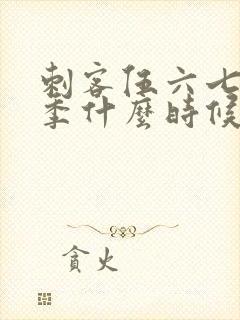 刺客伍六七
季什麼時候
貪火